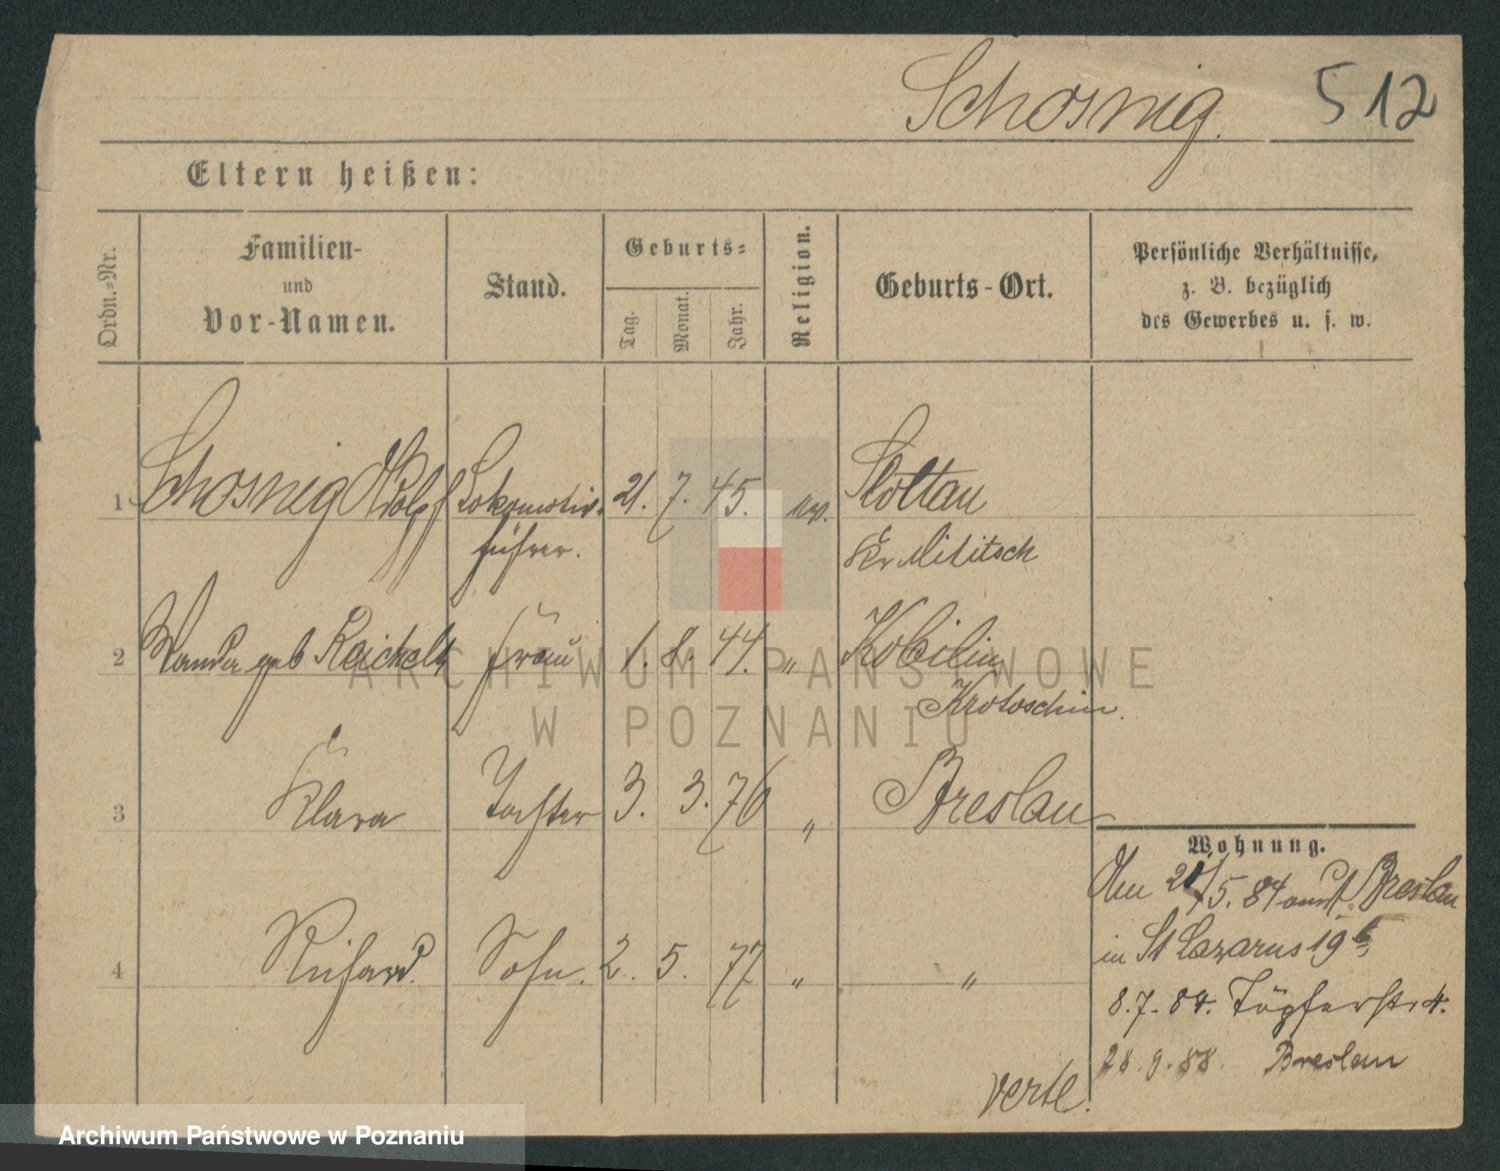 Schosnig. 512
Eltern heißen:
Ordn.=Nr.
Familien-
und
Vor-Namen.
Stand.
Geburts=
Tag.
Monat.
Jahr.
Religion.
Geburts-Ort.
Persönliche Verhältnisse,
z. B. bezüglich
des Gewerbes u. s. w.
1 Schosnig Adolf Lokomotiv- 21. 7. 45. ev.
führer.
Kr Militsch
2 Wanda geb Reichelt Frau 1. 8. 44. " Kobilin
Krotoschin.
3 Klara Tochter 3. 3. 76 " Breslau
Wohnung.
Am 21/5. 84 aus Breslau
in St Lazarus 19 b
4 Richard. Sohn. 2. 5. 77 " "
8.7.84. Töpferstr 4.
28.9.88. Breslau
verte.
ARCHIWUM PAŃSTWOWE
W POZNANIU
Archiwum Państwowe w Poznaniu